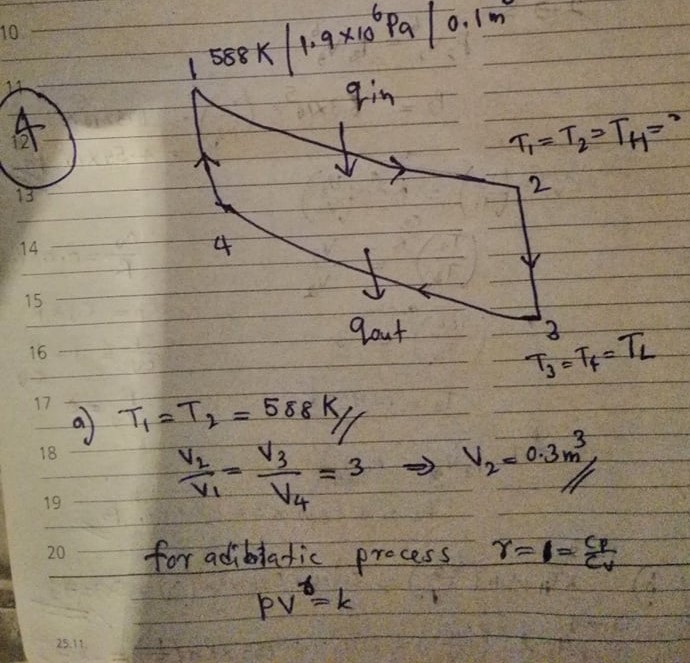 10
11
12
13
14
15
16
17
18
19
20
25.11
4
1 588 K | 1.9×10⁶ Pa | 0.1 m³
qin
T₁ = T₂ = T_H = ?
2
4
qout
3
T₃ = T₄ = T_L
a) T₁ = T₂ = 588 K //
V₂/V₁ = V₃/V₄ = 3 ⇒ V₂ = 0.3 m³ //
for adibtatic process γ = = Cp/Cv
pV^γ = k